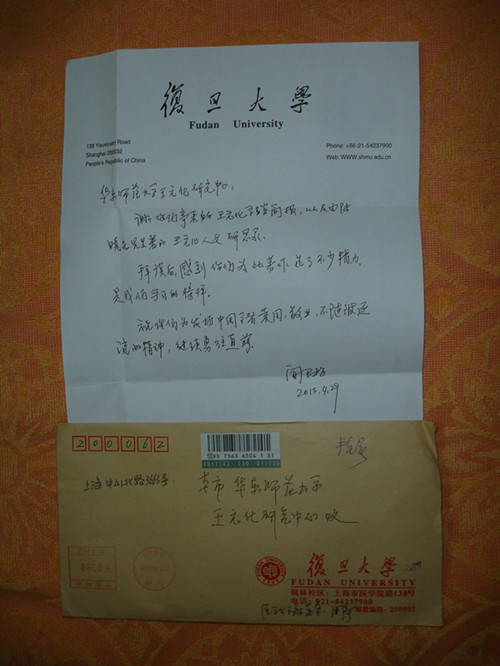 復旦大學
Fudan University
138 Yixueyuan Road
Shanghai 200032
People's Republic of China
Phone: +86-21-54237900
Web: WWW.shmu.edu.cn
华东师范大学王元化研究中心:
谢谢你们寄来的王元化学馆简报,以及由陆
晓光兄著的王元化人文研思录。
拜读后,感到你们为此著作,花了不少精力,
是我们学习的榜样。
祝你们为发扬中国学者爱国、敬业、不随波逐
流的精神,继续勇往直前。
2015.4.29
200062
上海中山北路3663号
本市 华东师范大学
王元化研究中心收
復旦大學
FUDAN UNIVERSITY
枫林校区:上海市医学院路138号
电话:021-54237900
邮政编码:200032